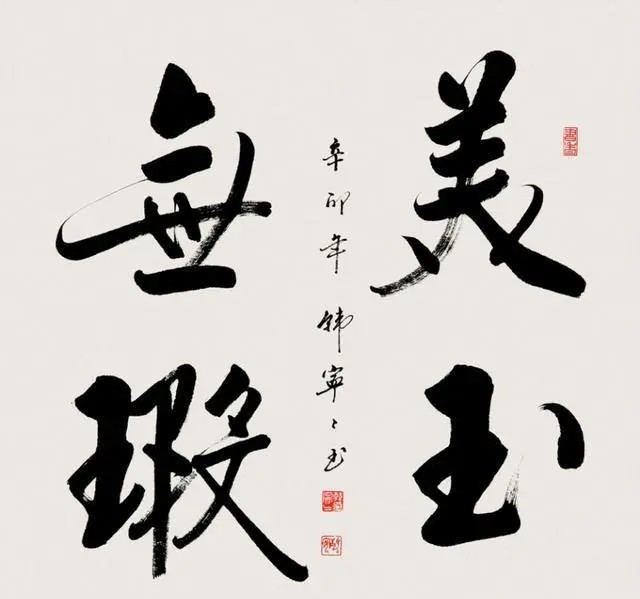 美玉
無瑕
辛卯年 韩寧々书